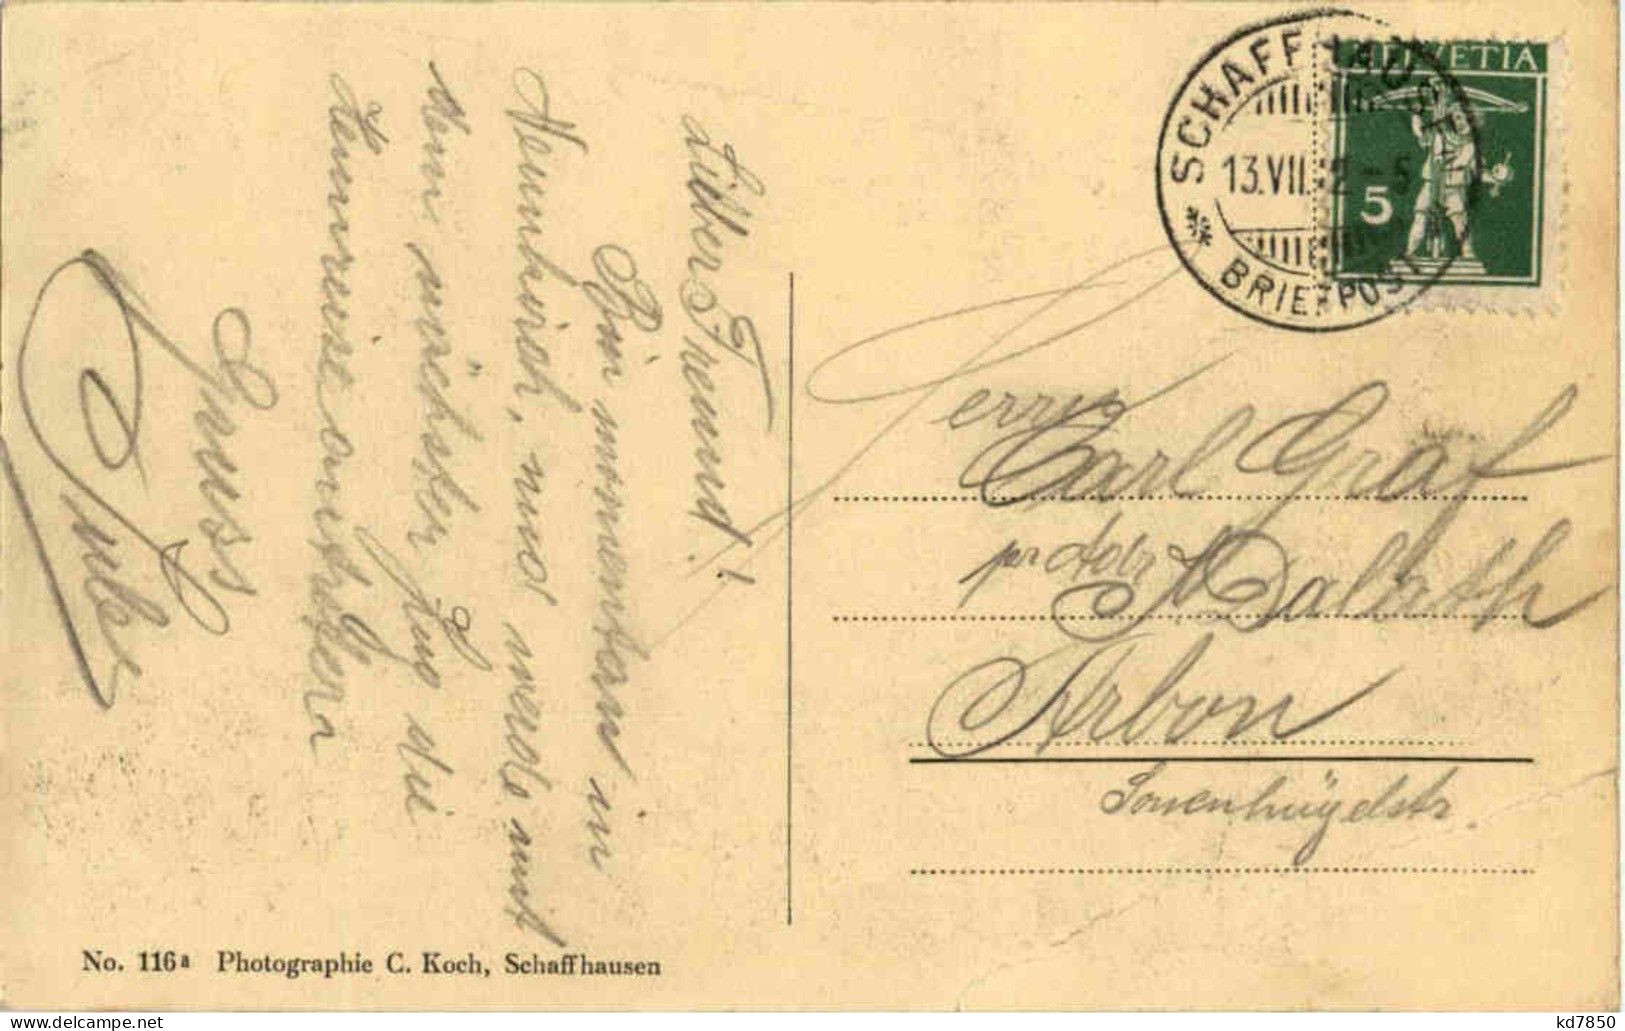 Lieber Freund!
Bin momentan in
Neunkirch, und werde mit
dem nächsten Zug die
Heimreise antreten
Gruss
HELVETIA
5
SCHAFFHAUSEN
13.VII. 12-5
BRIEFPOST
Herrn
Carl Graf
pr Adr
Arbon
Sonenhügelstr.
No. 116a Photographie C. Koch, Schaffhausen
kd7850